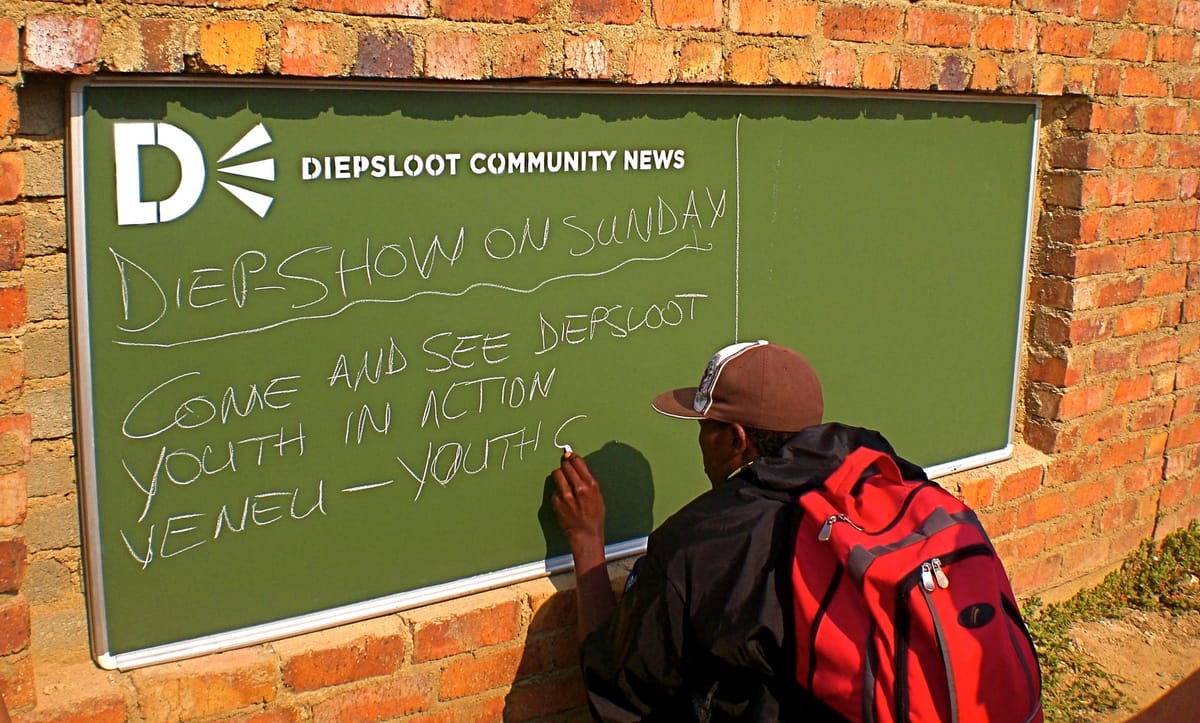 DIEPSLOOT COMMUNITY NEWS
DIEP-SHOW ON SUNDAY
COME AND SEE DIEPSLOOT
YOUTH IN ACTION
VENEU - YOUTH C